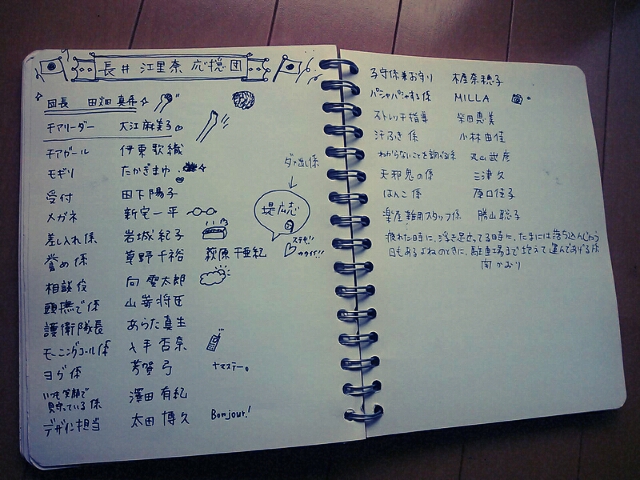 長井 江里奈 応援団
団長 田畑真希
チアリーダー 大江麻美子
チアガール 伊東歌織
モギリ たかぎまゆ
受付 田下陽子
メガネ 新宅一平
差し入れ係 岩城紀子
誉め係 草野千裕 萩原亜紀
相談役 向 雲太郎
頭撫で係 山嵜将臣
護衛隊長 あらた真生
モーニングコール係 入手杏奈
ヨガ係 芳賀弓 ナマステー。
いつも笑顔で
見守っている係 澤田有紀
デザイン担当 太田博久 Bonjour!
ダメ出し係
堤広応
ステキ!!
カワイイ!!
子守係兼お守り 木屋奈穂子
パシャパシャ係 MILLA
ストレッチ指導 柴田恵美
汗ふき係 小林由佳
わからないことを調べ係 丸山武彦
天邪鬼の係 三津久
はんこ係 原口佳子
楽屋専用スタッフ係 勝山聡子
疲れた時に、浮き足立ってる時に、たまには落ち込んじゃう
日もあるよねのときに、駐車場まで抱えて運んであげる係
関かおり